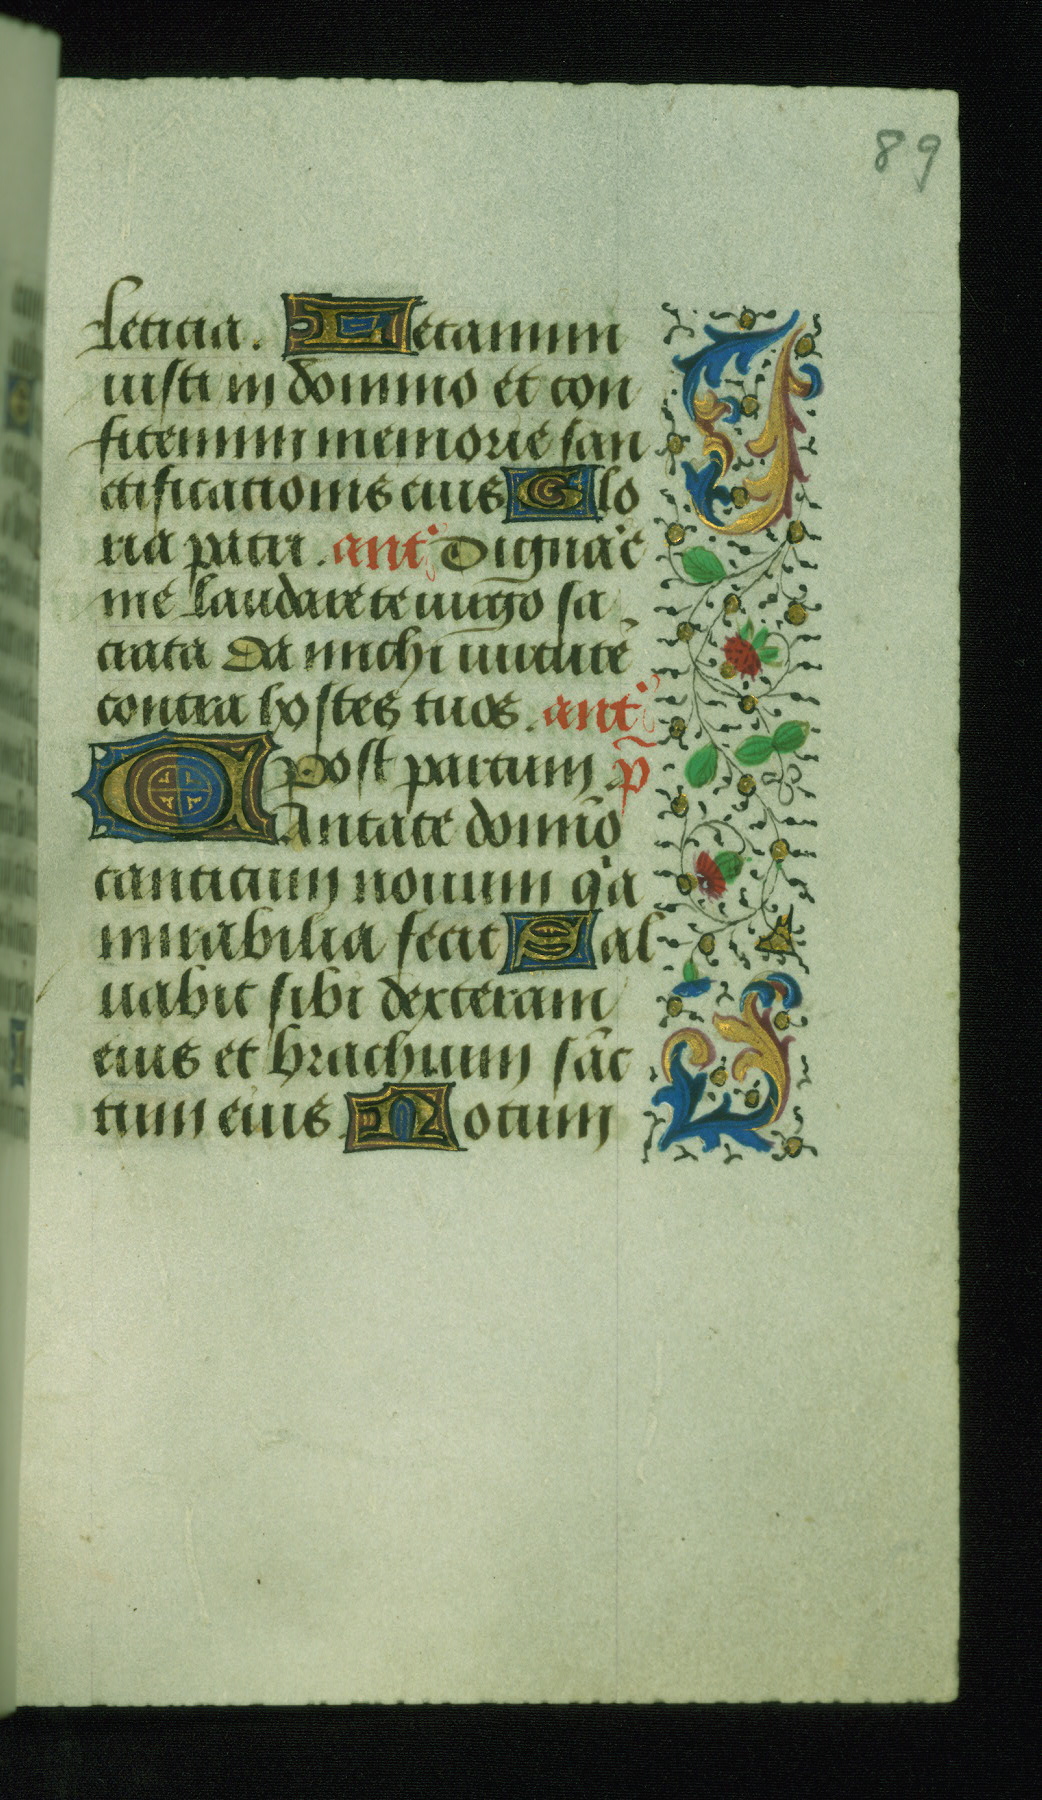 89
leticia. Letamini
iusti in domino et con
fitemini memorie san
ctificationis eius Glo
ria patri. ant' Dignar̄e
me laudare te uirgo sa
crata Da michi uirtutē
contra hostes tuos. ant'
Post partum p̄
Cantate domīno
canticum nouum q̄a
mirabilia fecit Sal
uabit sibi dexteram
eius et brachium sāc
tum eius Notum